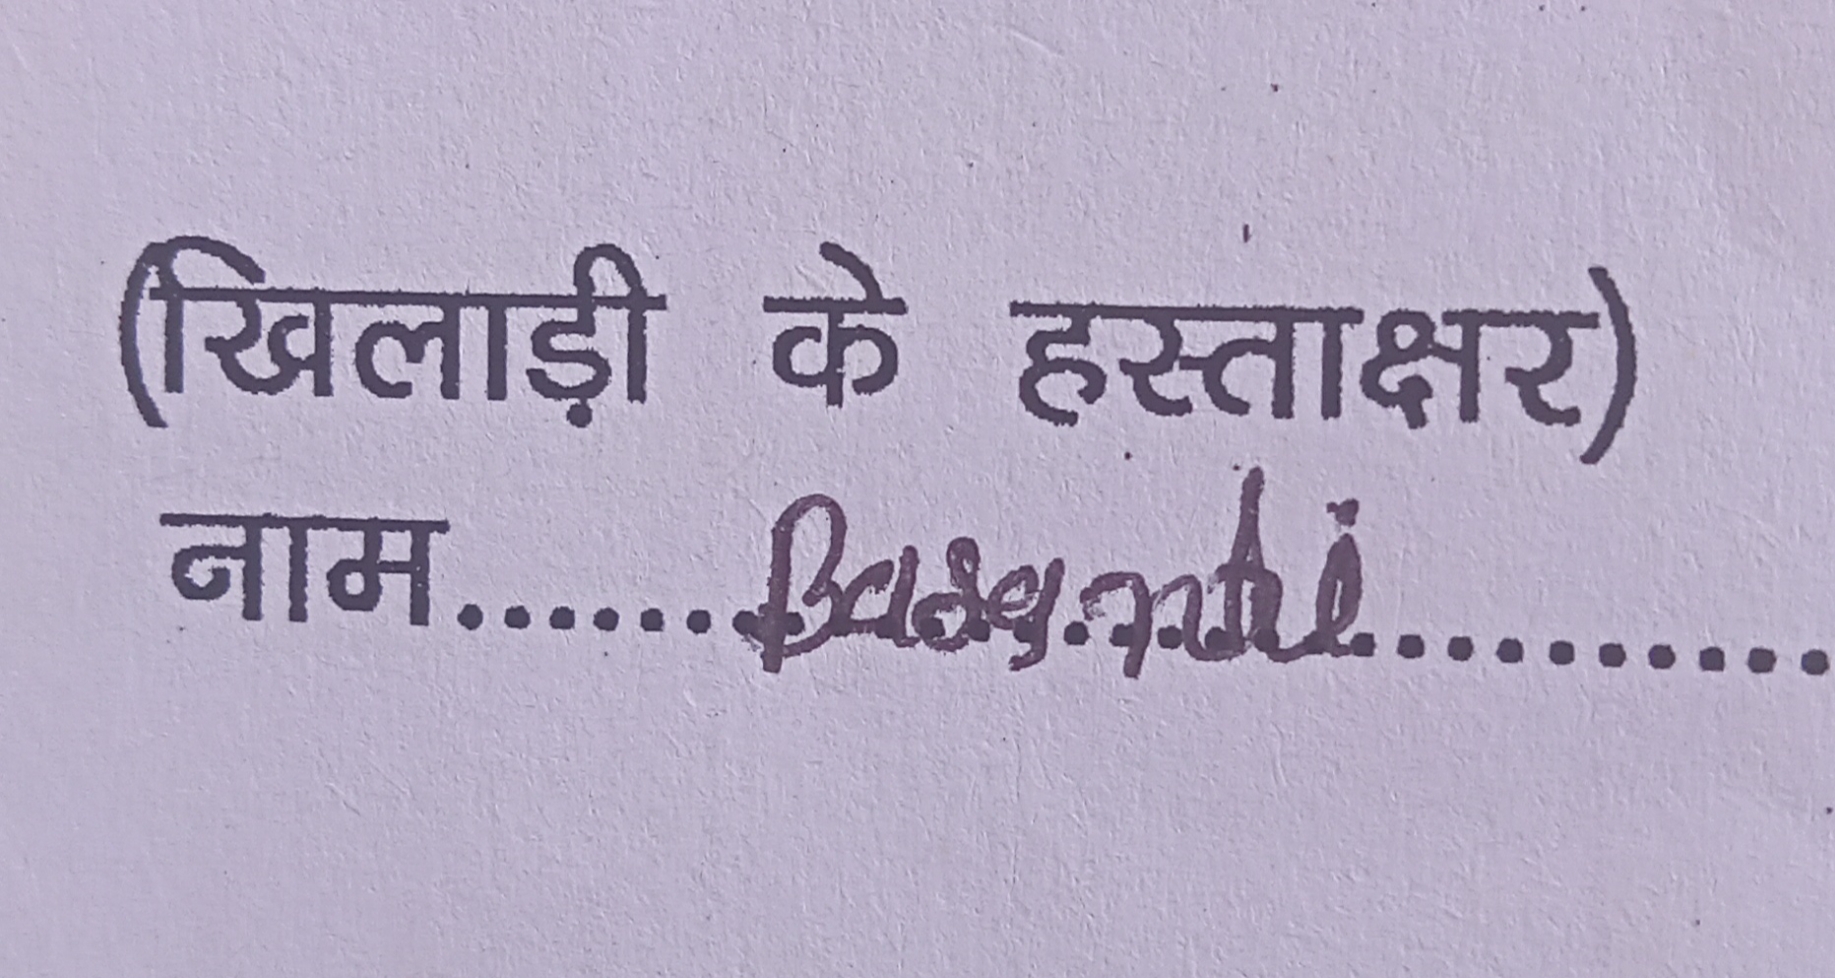 (खिलाड़ी के हस्ताक्षर)
नाम......Basanti..........